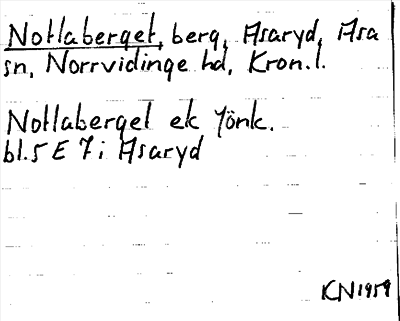 Notlaberget, berg, Asaryd, Asa
sn, Norrvidinge hd, Kron.l.
Notlaberget ek Jönk.
bl.5 E 7 i Asaryd
KN1959